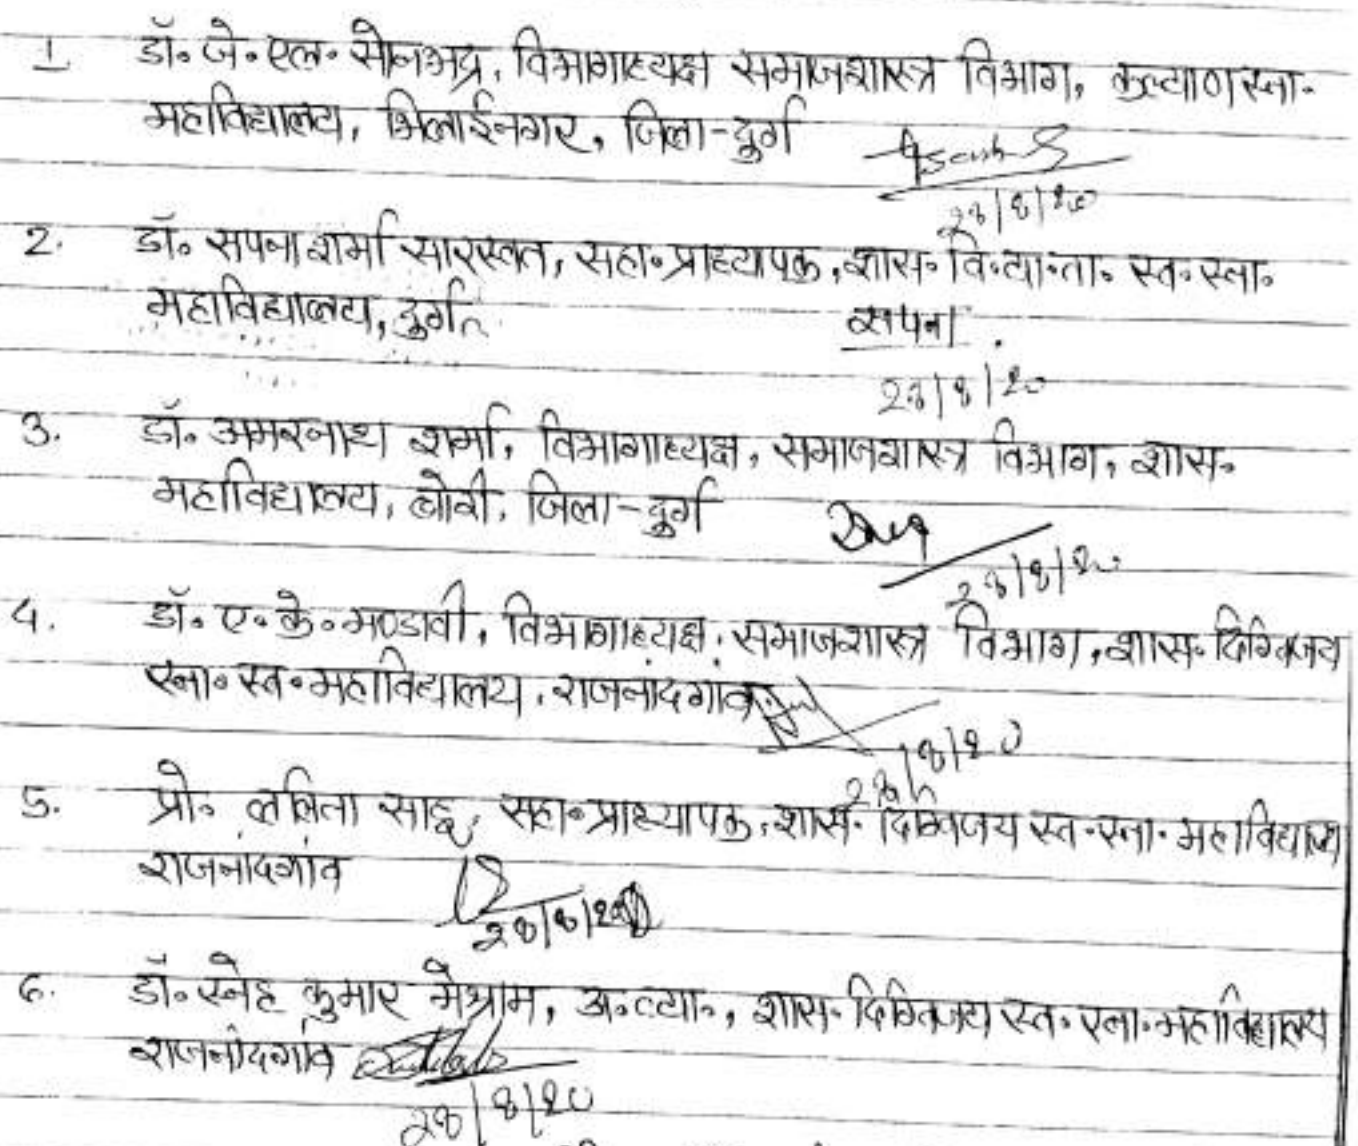 1 डॉ. जे. एल. सोनभद्र, विभागाध्यक्ष समाजशास्त्र विभाग, कल्याण स्ना.
महाविद्यालय, भिलाईनगर, जिला-दुर्ग
2. डॉ. सपना शर्मा सारस्वत, सहा. प्राध्यापक, शास. वि. या. ता. स्व. स्ना.
महाविद्यालय, दुर्ग
सपना
3. डॉ. अमरनाथ शर्मा, विभागाध्यक्ष, समाजशास्त्र विभाग, शास.
महाविद्यालय, बोरी, जिला-दुर्ग
4. डॉ. ए. के. मण्डावी, विभागाध्यक्ष, समाजशास्त्र विभाग, शास. दिग्विजय
स्ना. स्व. महाविद्यालय, राजनांदगांव
5. प्रो. ललिता साहू, सहा. प्राध्यापक, शास. दिग्विजय स्व. स्ना. महाविद्यालय
राजनांदगांव
6. डॉ. स्नेह कुमार मेश्राम, अ. व्या., शास. दिग्विजय स्व. स्ना. महाविद्यालय
राजनांदगांव